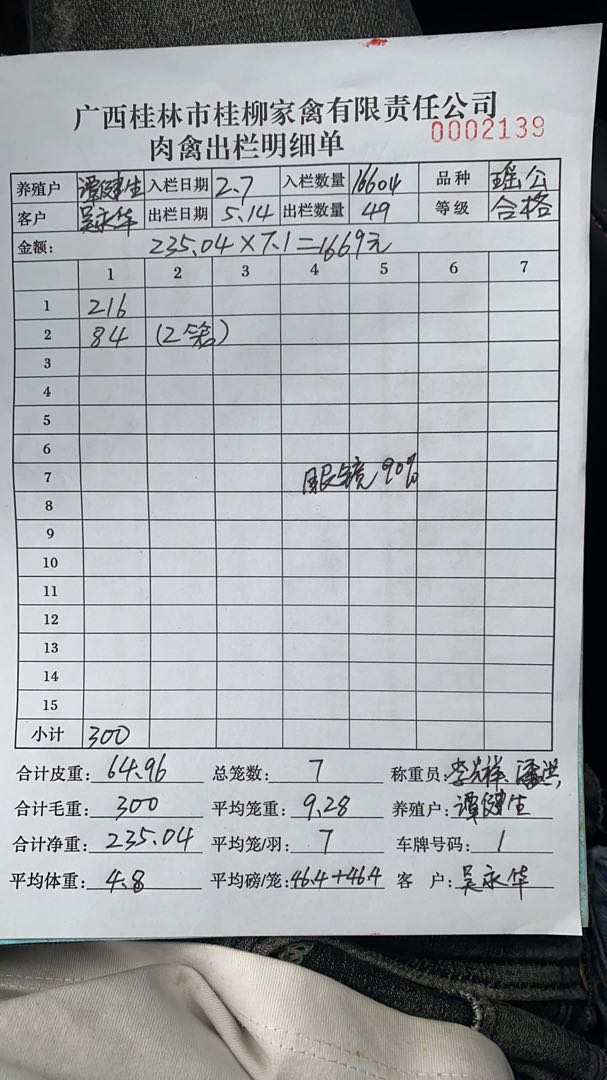 广西桂林市桂柳家禽有限责任公司
肉禽出栏明细单 0002139
养殖户 谭健生 入栏日期 2.7 入栏数量 16604 品种 瑶公
客户 吴永华 出栏日期 5.14 出栏数量 49 等级 合格
金额: 235.04×7.1=1669元
1 2 3 4 5 6 7
1 216
2 84 (2笼)
3
4
5
6
7 眼镜90%
8
9
10
11
12
13
14
15
小计 300
合计皮重: 64.96 总笼数: 7 称重员:
合计毛重: 300 平均笼重: 9.28 养殖户: 谭健生
合计净重: 235.04 平均笼/羽: 7 车牌号码: 1
平均体重: 4.8 平均磅/笼: 46.4+46.4 客户: 吴永华